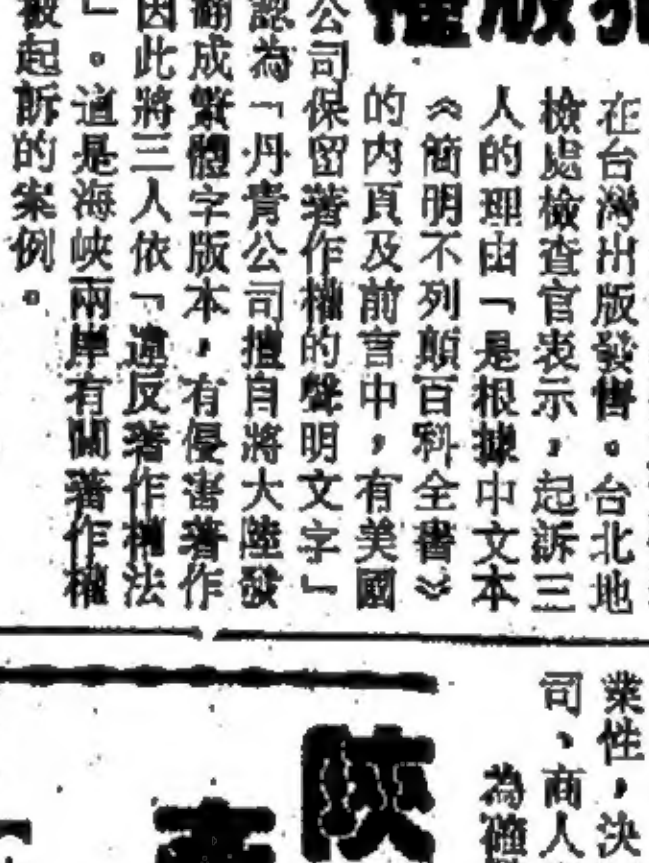 犯版權
在台灣出版發售。台北地
檢處檢查官表示，起訴三
人的理由「是根據中文本
《簡明不列顛百科全書》
的內頁及前言中，有美國
公司保留著作權的聲明文字」
認為「丹青公司擅自將大陸發
翻成繁體字版本，有侵害著作
因此將三人依「違反著作權法
」。這是海峽兩岸有關著作權
被起訴的案例。
業性，決
司、商人
為確
陝